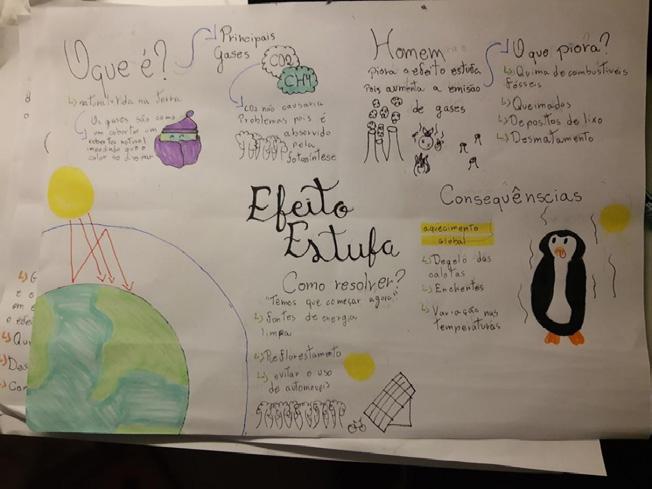 O que é?
↳ natural → vida na Terra
Os gases são como
um cobertor um
natural
impedindo que o
calor se dispar
Principais
Gases
CO2
CH4
CO2 não causaria
Problemas pois é
absorvido
pela
fotossíntese
Homem
piora o efeito estufa
Pois aumenta a emissão
de gases
O que piora?
↳ Quima de combustíveis
fósseis
↳ Queimadas
↳ Depositos de lixo
↳ Desmatamento
Efeito
Estufa
Consequênscias
aquecimento
Global
↳ Degelo das
calotas
↳ Enchentes
↳ Variação nas
temperaturas
Como resolver?
"Temos que começar agora"
↳ fontes de energia
limpa
↳ Reflorestamento
↳ evitar o uso
de automoveis